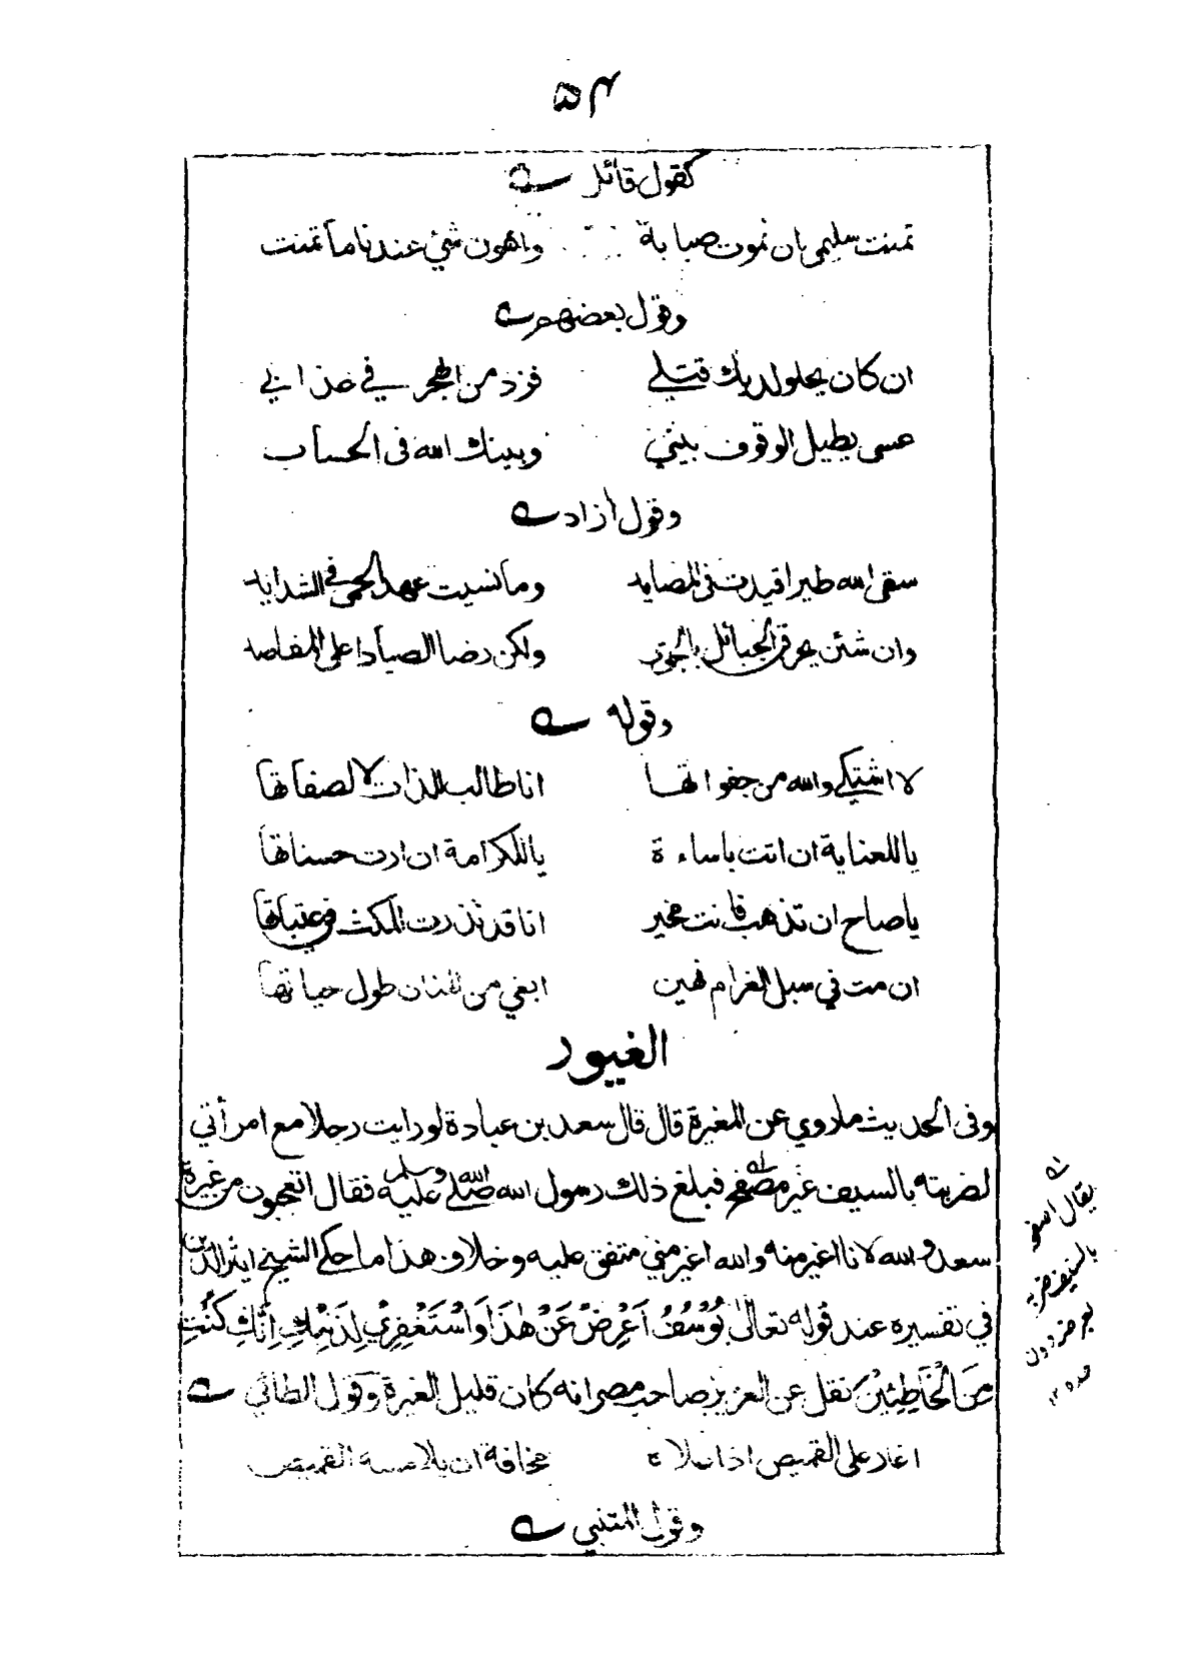 ۵۴
كقول قائل
تمنت سليمى ان نموت صبابة واهون شئ عندنا ما تمنت
وقول بعضهم
ان كان يحلو لديك قتلي فزد من الهجر في عذابي
عسى يطيل الوقوف بيني وبينك الله فى الحساب
وقول ازاد
سقى الله طيرا قيدت فى المصايد وما نسيت عهد الحمى فى الشدايد
وان شئن يحرقن الحبائل بالجوى ولكن رضا الصياد اعلى المقاصد
وقوله
لا اشتكي والله من جفواتها انا طالب للذات لا لصفاتها
ياللعناية ان اتت باساءة ياللكرامة ان ارت حسناتها
ياصاح ان تذهب فانت مخير انا قد نذرت المكث في عتباتها
ان مت في سبل الغرام فهين ابغي من المنان طول حياتها
الغيور
وفى الحديث ماروي عن المغيرة قال قال سعد بن عبادة لو رايت رجلا مع امرأتي
لضربته بالسيف غير مصفح فبلغ ذلك رسول الله صلى الله عليه وسلم فقال اتعجبون من غيرة
سعد والله لانا اغير منه والله اغير مني متفق عليه وخلاف هذا ما حكى الشيخ اثير الدين
في تفسيره عند قوله تعالى يُوْسُفُ اَعْرِضْ عَنْ هٰذَا وَاسْتَغْفِرِيْ لِذَنْبِكِ اِنَّكِ كُنْتِ
مِنَ الْخَاطِئِيْنَ نقل عن العزيز صاحب مصر انه كان قليل الغيرة وقول الطائي
اغار على القميص اذا علاه مخافة ان يلامسه القميص
وقول المتنبي
يقال اصفحه
بالسيف ضربه